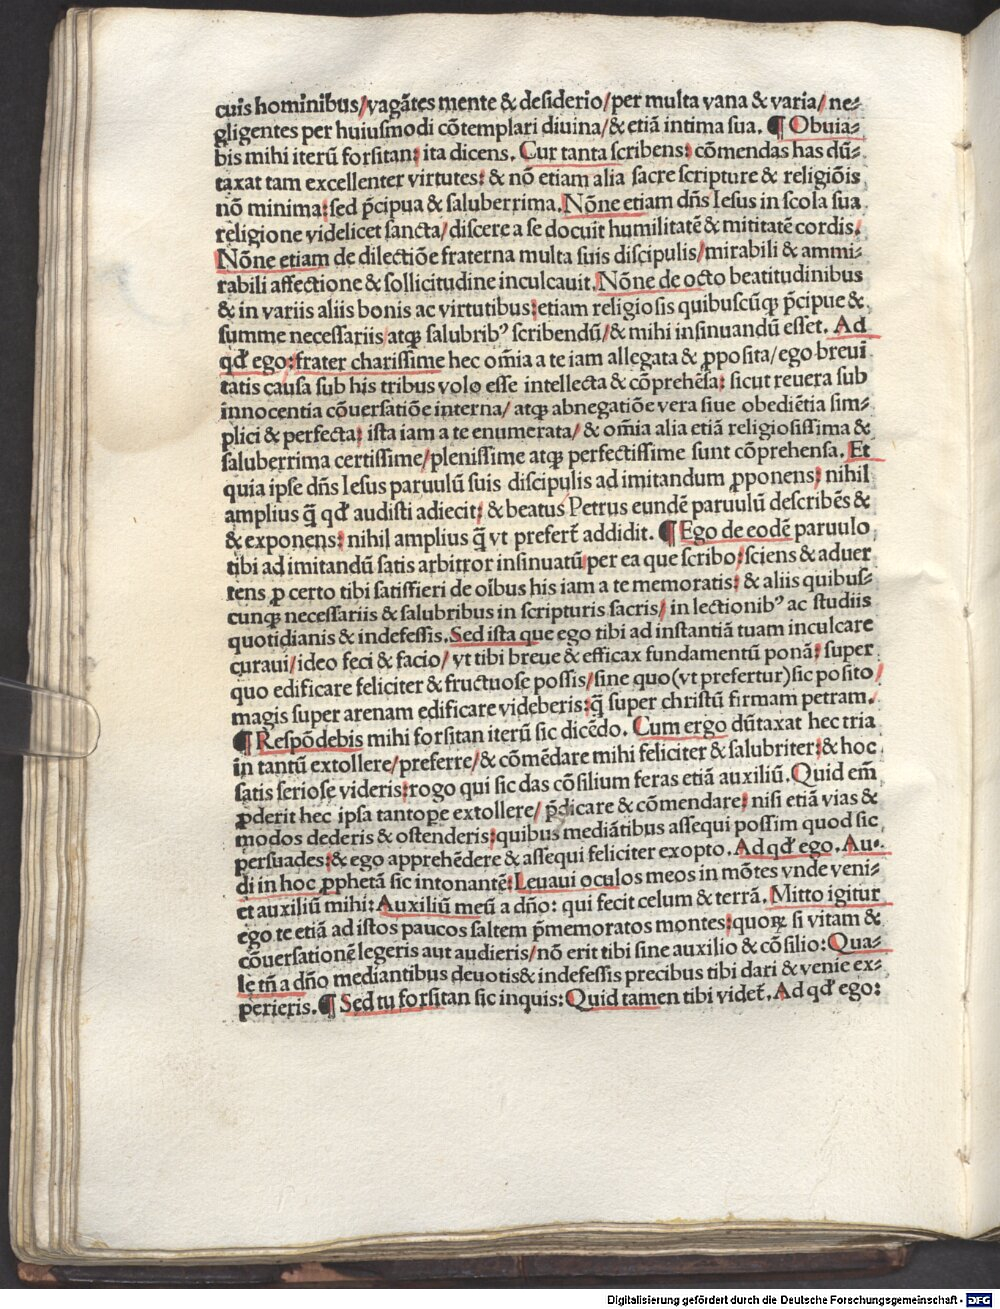 cuis hominibus/vagãtes mente & desiderio/per multa vana & varia/ ne⸗
gligentes per huiusmodi cõtemplari diuina/& etiã intima sua. ¶ Obuia⸗
bis mihi iterũ forsitan: ita dicens. Cur tanta scribens: cõmendas has dũ⸗
taxat tam excellenter virtutes: & nõ etiam alia sacre scripture & religiõis
nõ minima: sed p̃cipua & saluberrima. Nõne etiam dñs Iesus in scola sua
religione videlicet sancta/discere a se docuit humilitatẽ & mititatẽ cordis.
Nõne etiam de dilectiõe fraterna multa suis discipulis/mirabili & ammi⸗
rabili affectione & sollicitudine inculcauit. Nõne de octo beatitudinibus
& in variis aliis bonis ac virtutibus: etiam religiosis quibuscũqꝫ p̃cipue &
summe necessariis atqꝫ salubribꝰ scribendũ/& mihi insinuandũ esset. Ad
qđ ego: frater charissime hec om̃ia a te iam allegata & ꝓposita/ego breui
tatis causa sub his tribus volo esse intellecta & cõprehẽsa: sicut reuera sub
innocentia cõuersatiõe interna/ atqꝫ abnegatiõe vera siue obediẽtia sim⸗
plici & perfecta: ista iam a te enumerata/ & om̃ia alia etiã religiosissima &
saluberrima certissime/plenissime atqꝫ perfectissime sunt cõprehensa. Et
quia ipse dñs Iesus paruulũ suis discipulis ad imitandum ꝓponens: nihil
amplius q̃ qđ audisti adiecit: & beatus Petrus eundẽ paruulũ describẽs &
& exponens: nihil amplius q̃ vt prefert̃ addidit. ¶ Ego de eodẽ paruulo
tibi ad imitandũ satis arbitror insinuatũ per ea que scribo: sciens & aduer
tens ꝓ certo tibi satisfieri de oĩbus his iam a te memoratis: & aliis quibus⸗
cunqꝫ necessariis & salubribus in scripturis sacris/ in lectionibꝰ ac studiis
quotidianis & indefessis. Sed ista que ego tibi ad instantiã tuam inculcare
curaui/ideo feci & facio/ vt tibi breue & efficax fundamentũ ponã: super
quo edificare feliciter & fructuose possis/sine quo(vt prefertur)sic posito/
magis super arenam edificare videberis: q̃ super christũ firmam petram.
¶ Respõdebis mihi forsitan iterũ sic dicẽdo. Cum ergo dũtaxat hec tria
in tantũ extollere/preferre/& cõmẽdare mihi feliciter & salubriter: & hoc
satis seriose videris: rogo qui sic das cõsilium feras etiã auxiliũ. Quid em̃
ꝓderit hec ipsa tantope extollere/ p̃dicare & cõmendare: nisi etiã vias &
modos dederis & ostenderis: quibus mediãtibus assequi possim quod sic
persuades: & ego apprehẽdere & assequi feliciter exopto. Ad qđ ego. Au⸗
di in hoc ꝓphetã sic intonantẽ: Leuaui oculos meos in mõtes vnde veni⸗
et auxiliũ mihi: Auxiliũ meũ a dño: qui fecit celum & terrã. Mitto igitur
ego te etiã ad istos paucos saltem p̃memoratos montes: quoꝝ si vitam &
cõuersationẽ legeris aut audieris/nõ erit tibi sine auxilio & cõsilio: Qua⸗
le tñ a dño mediantibus deuotis& indefessis precibus tibi dari & venie ex⸗
perieris. ¶ Sed tu forsitan sic inquis: Quid tamen tibi videt̃. Ad qđ ego:
Digitalisierung gefördert durch die Deutsche Forschungsgemeinschaft - DFG